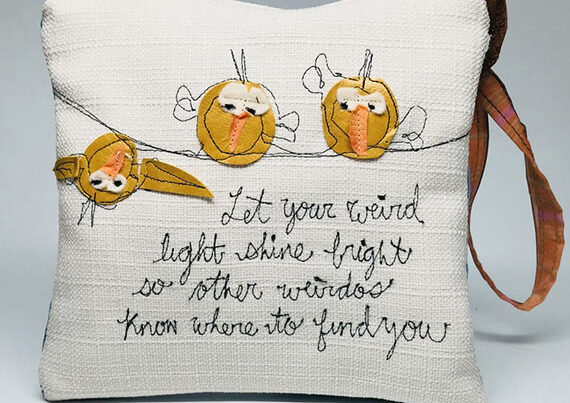 Let your weird
light shine bright
so other weirdos
know where to find you